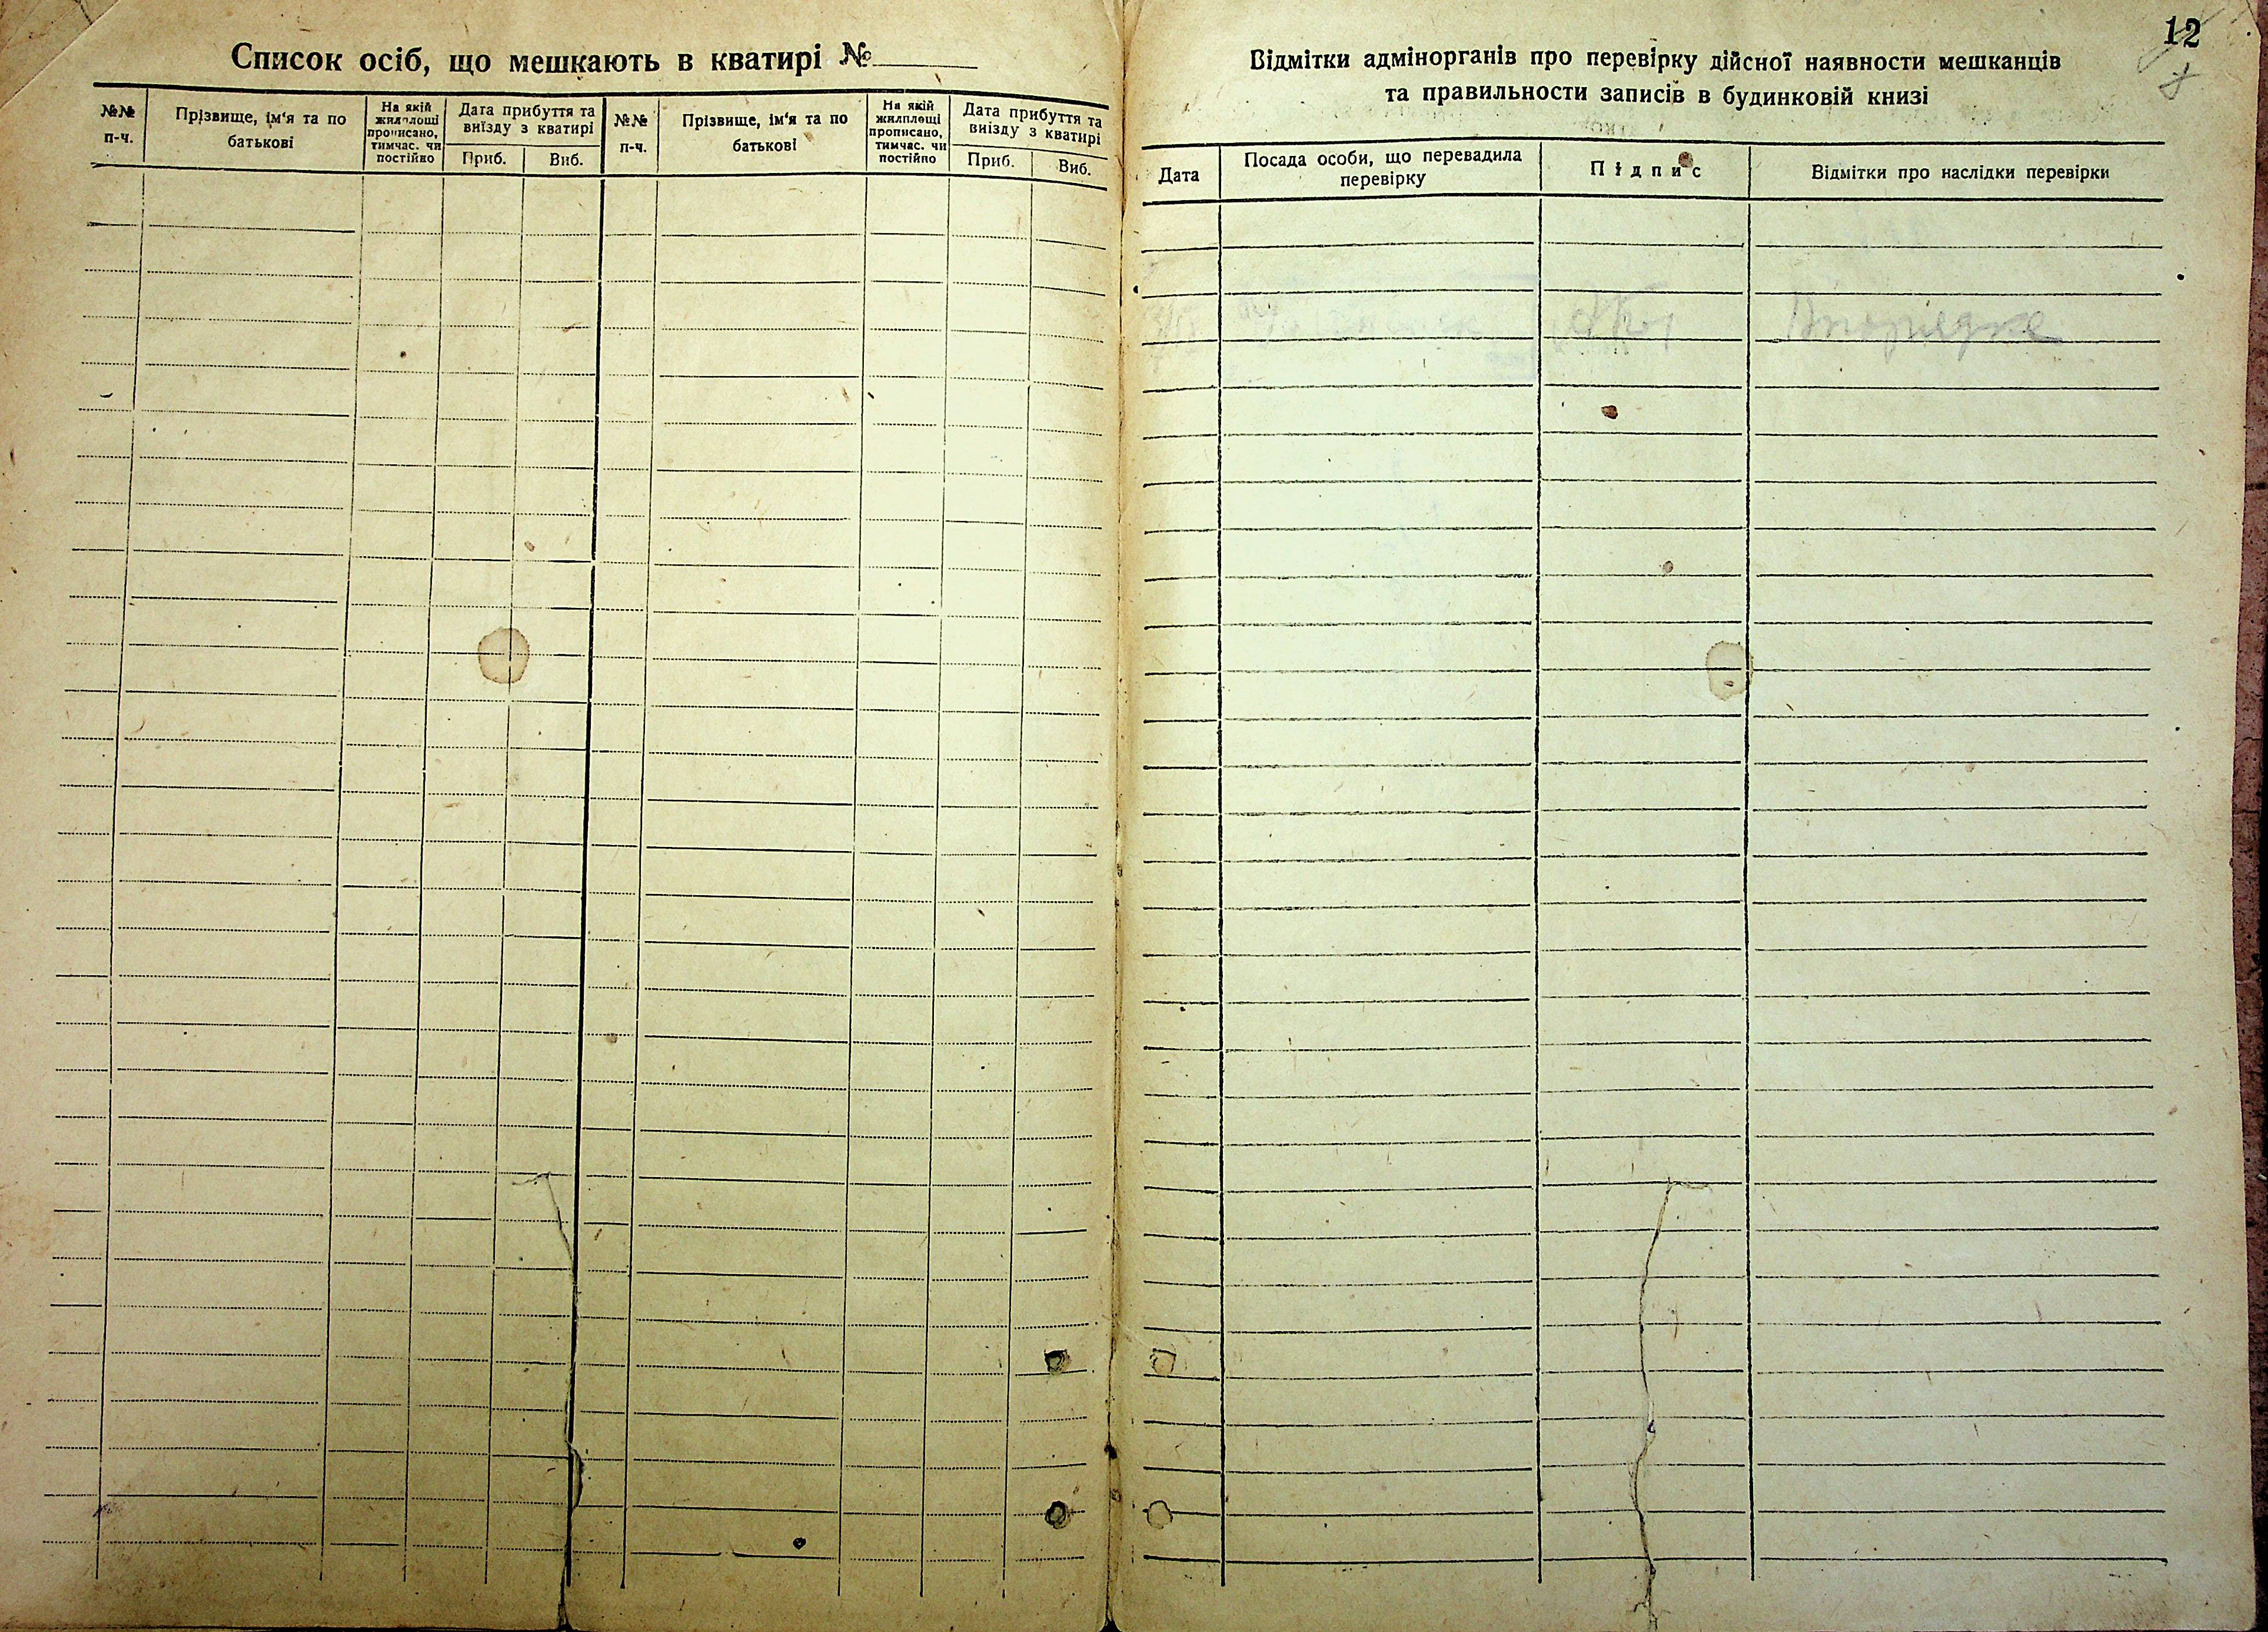 Список осіб, що мешкають в кватирі №
№№ п-ч.
Прізвище, ім'я та по батькові
На якій жилплощі прописано, тимчас. чи постійно
Дата прибуття та виїзду з кватирі
Приб.
Виб.
№№ п-ч.
Прізвище, ім'я та по батькові
На якій жилплощі прописано, тимчас. чи постійно
Дата прибуття та виїзду з кватирі
Приб.
Виб.
12
Відмітки адмінорганів про перевірку дійсної наявности мешканців
та правильности записів в будинковій книзі
Дата
Посада особи, що перевадила
перевірку
Підпис
Відмітки про наслідки перевірки